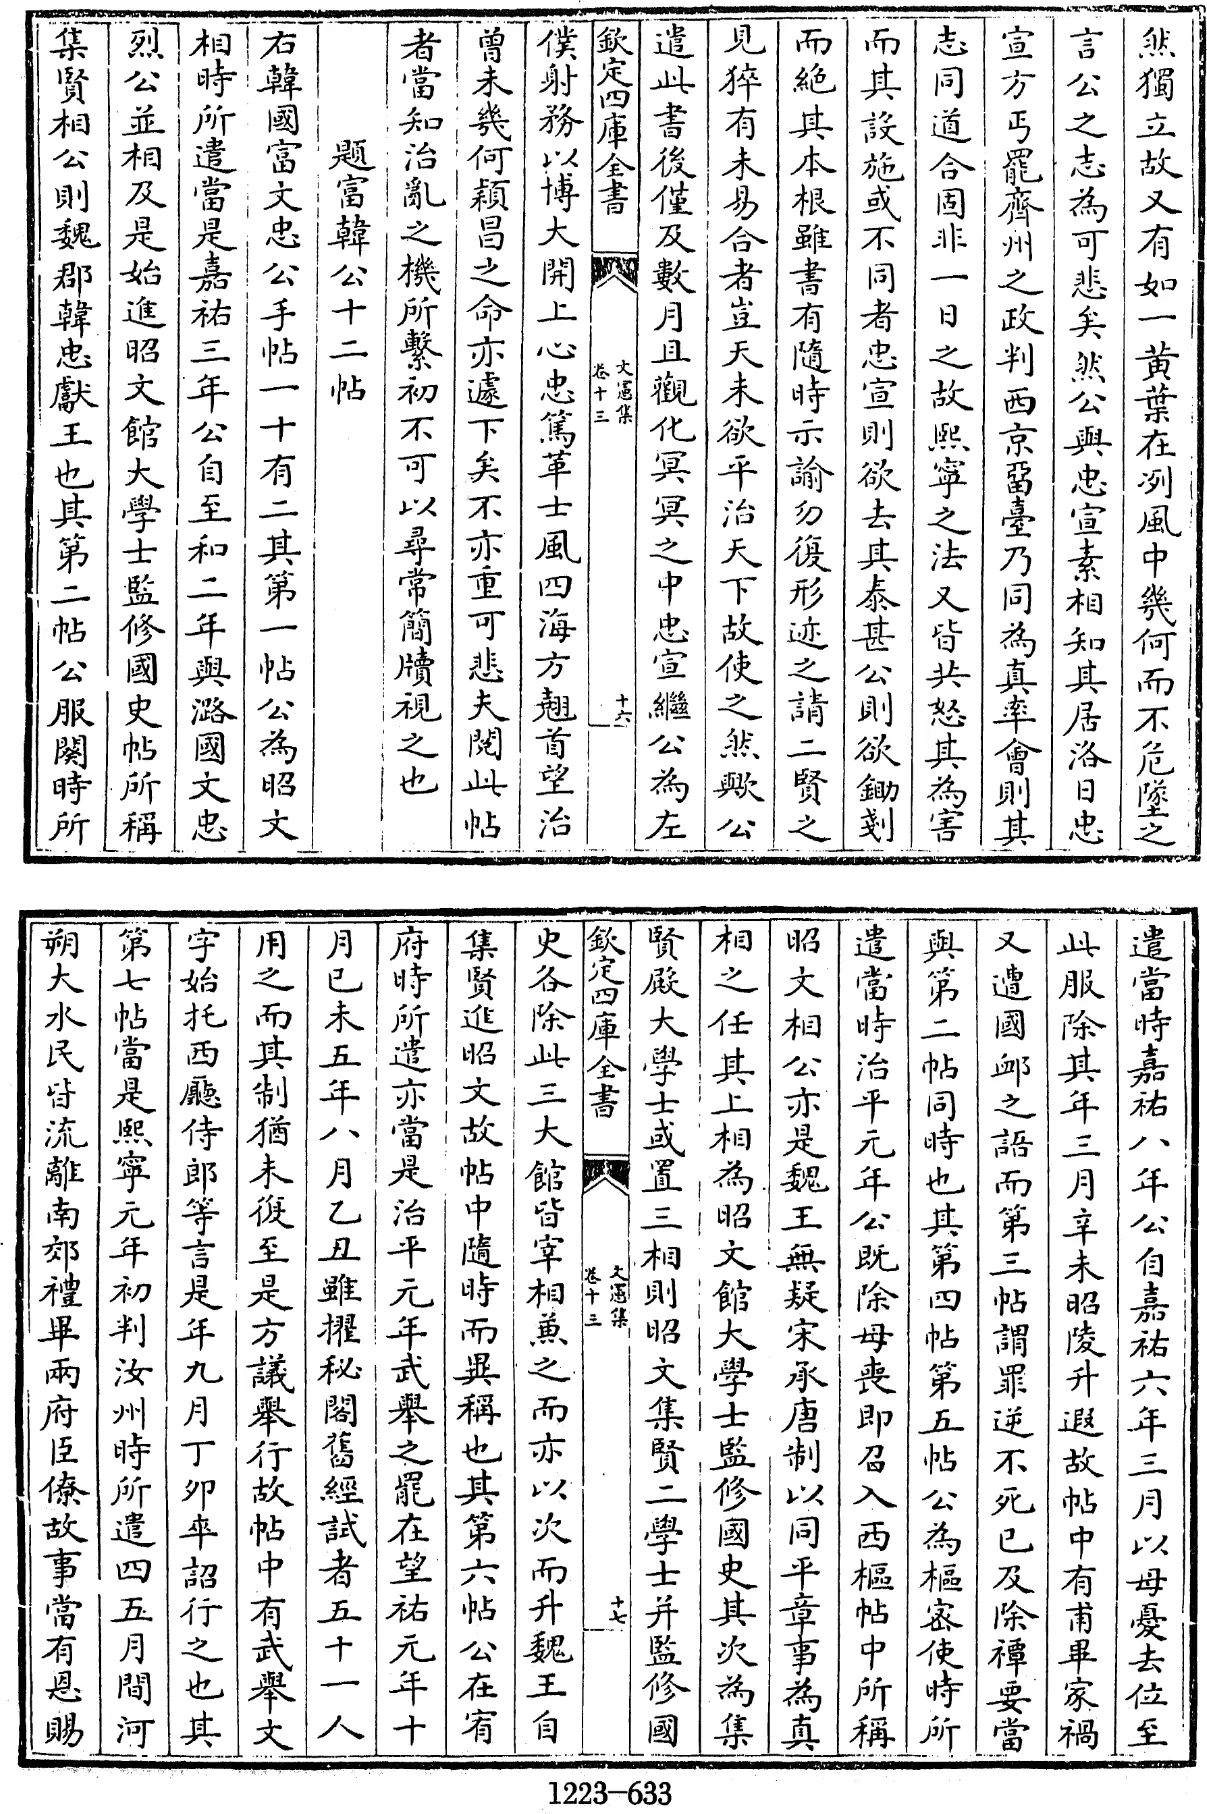 然獨立故又有如一黄葉在冽風中幾何而不危墜之
言公之志為可悲矣然公與忠宣素相知其居洛日忠
宣方丐罷齊州之政判西京留臺乃同為真率會則其
志同道合固非一日之故熙寧之法又皆共怒其為害
而其設施或不同者忠宣則欲去其泰甚公則欲鋤剗
而絶其本根雖書有隨時示諭勿復形迹之請二賢之
見猝有未易合者豈天未欲平治天下故使之然歟公
遣此書後僅及數月且觀化冥冥之中忠宣繼公為左
欽定四庫全書
文憲集
卷十三
十六
僕射務以博大開上心忠篤革士風四海方翹首望治
曾未幾何潁昌之命亦遽下矣不亦重可悲夫閱此帖
者當知治亂之機所繫初不可以尋常簡牘視之也
題富韓公十二帖
右韓國富文忠公手帖一十有二其第一帖公為昭文
相時所遣當是嘉祐三年公自至和二年與潞國文忠
烈公並相及是始進昭文館大學士監修國史帖所稱
集賢相公則魏郡韓忠獻王也其第二帖公服闋時所
遣當時嘉祐八年公自嘉祐六年三月以母憂去位至
此服除其年三月辛未昭陵升遐故帖中有甫畢家禍
又遭國䘏之語而第三帖謂罪逆不死已及除禫要當
與第二帖同時也其第四帖第五帖公為樞密使時所
遣當時治平元年公既除母喪即召入西樞帖中所稱
昭文相公亦是魏王無疑宋承唐制以同平章事為真
相之任其上相為昭文館大學士監修國史其次為集
賢殿大學士或置三相則昭文集賢二學士并監修國
欽定四庫全書
文憲集
卷十三
十七
史各除此三大館皆宰相兼之而亦以次而升魏王自
集賢進昭文故帖中隨時而異稱也其第六帖公在宥
府時所遣亦當是治平元年武舉之罷在望祐元年十
月已未五年八月乙丑雖擢秘閣舊經試者五十一人
用之而其制猶未復至是方議舉行故帖中有武舉文
字始托西廳侍郎等言是年九月丁卯卒詔行之也其
第七帖當是熙寧元年初判汝州時所遣四五月間河
朔大水民皆流離南郊禮畢兩府臣僚故事當有恩賜
1223-633